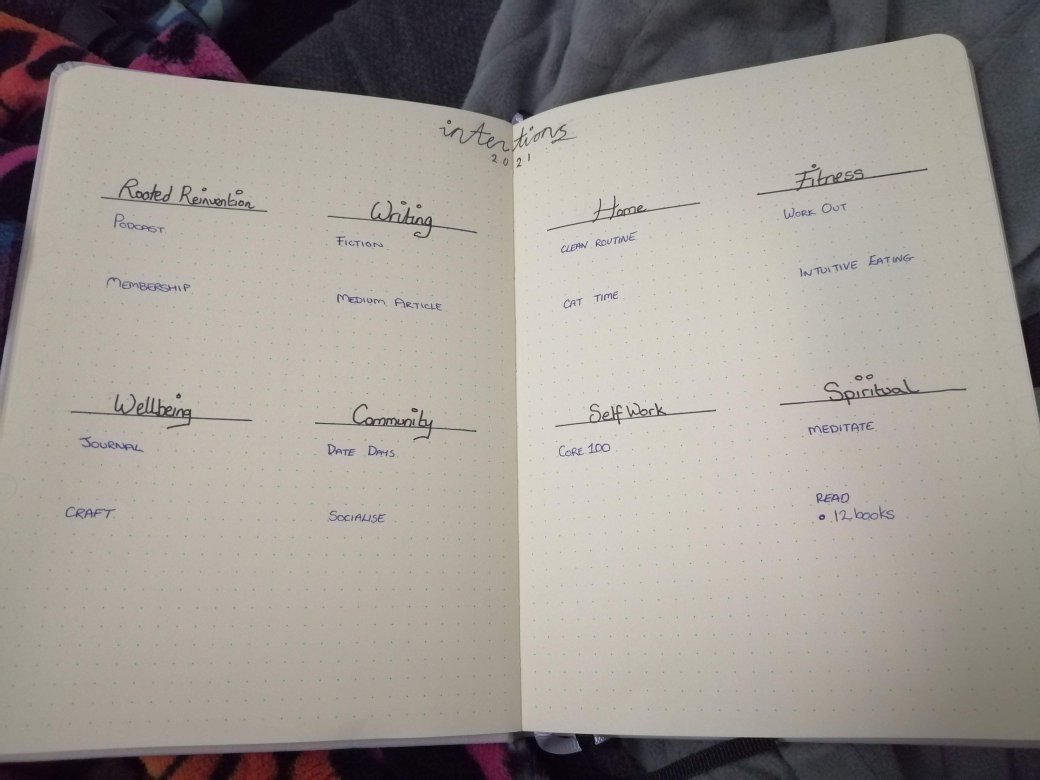 intentions
2021
Rooted Reinvention
PODCAST
MEMBERSHIP
Writing
FICTION
MEDIUM ARTICLE
Wellbeing
JOURNAL
CRAFT
Community
DATE DAYS
SOCIALISE
Home
CLEAN ROUTINE
CAT TIME
Fitness
WORK OUT
INTUITIVE EATING
Self Work
CORE 100
Spiritual
MEDITATE
READ
• 12 books